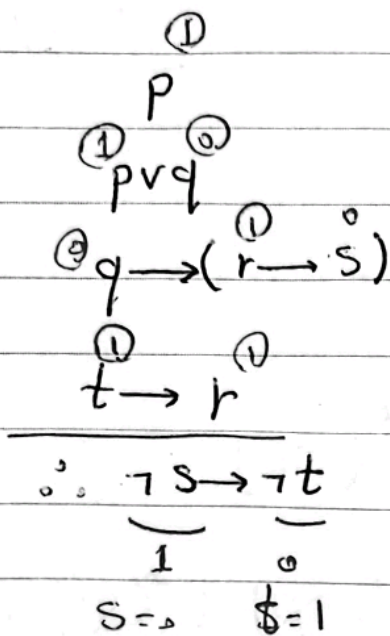 ①
p
① ⓪
p∨q
⓪ ① 0
q→(r→s)
① ①
t→r
∴ ¬s→¬t
1 0
s=0 t=1